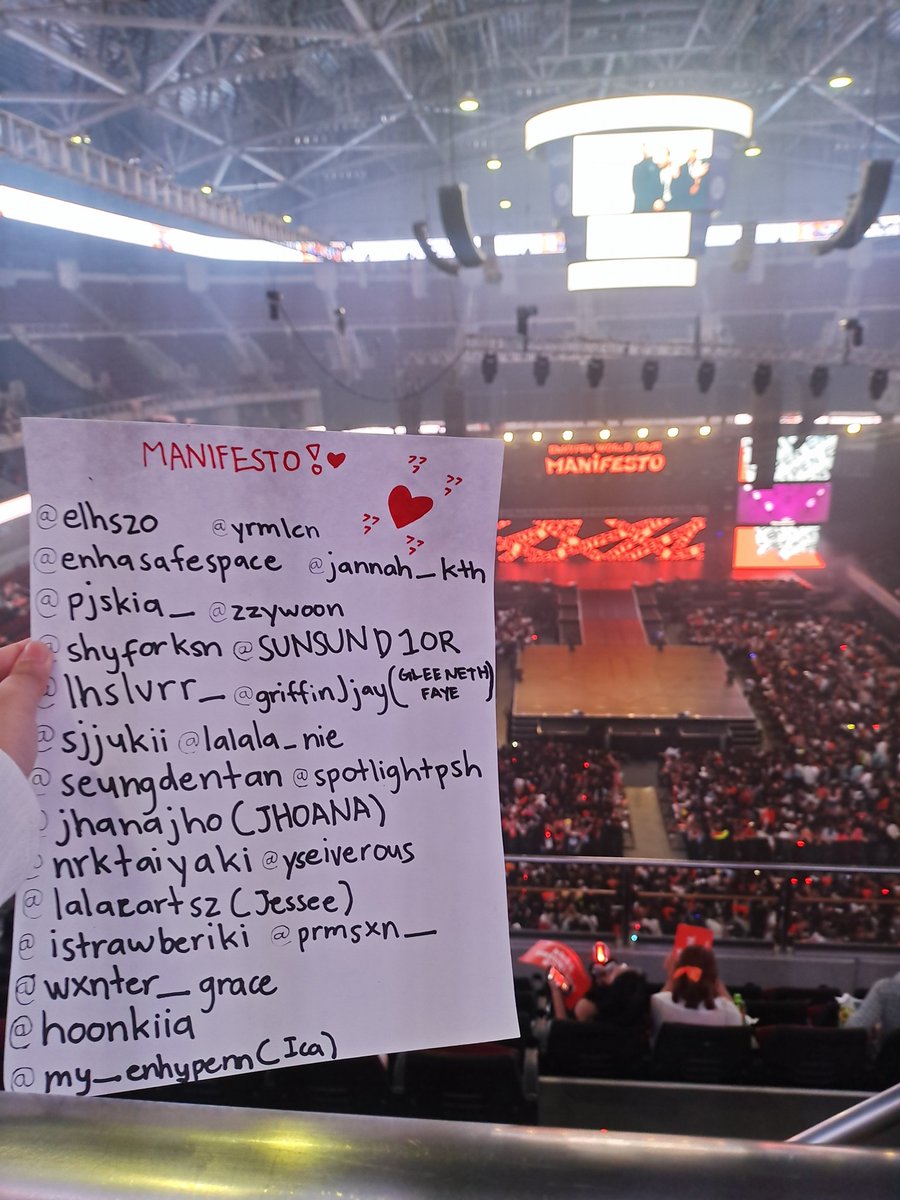 MANIFESTO!
@elhszo @yrmlcn
@enhasafespace @jannah_kth
@pjskia_ @zzywoon
@shyforksn @SUNSUND1OR
@lhslvrr_ @griffinJjay (GLEENETH FAYE)
@sjjukii @lalala_nie
@seungdentan @spotlightpsh
@jhanajho (JHOANA)
@nrktaiyaki @yseiverous
@lalaeartsz (Jessee)
@istrawberiki @prmsxn_
@wxnter_grace
@hoonkiia
@my_enhypenn (Ica)
ENHYPEN WORLD TOUR
MANIFESTO